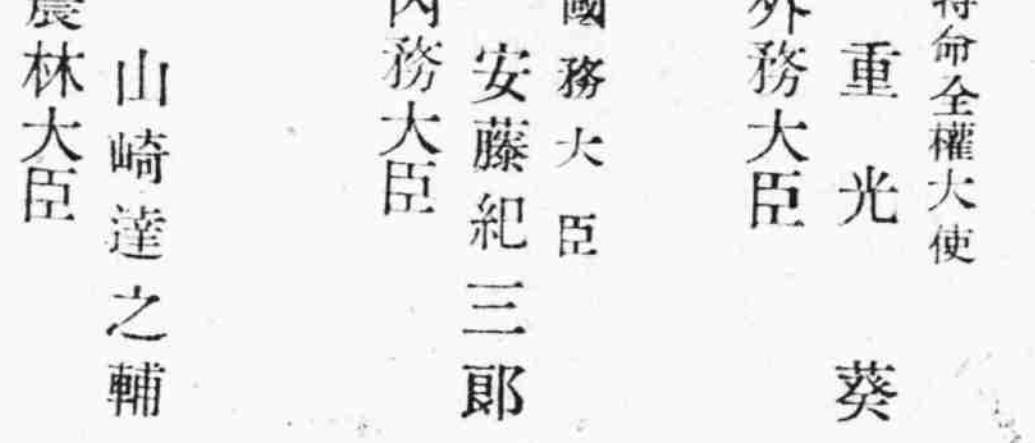 特命全權大使
重光葵
外務大臣
國務大臣
安藤紀三郞
內務大臣
山崎達之輔
農林大臣